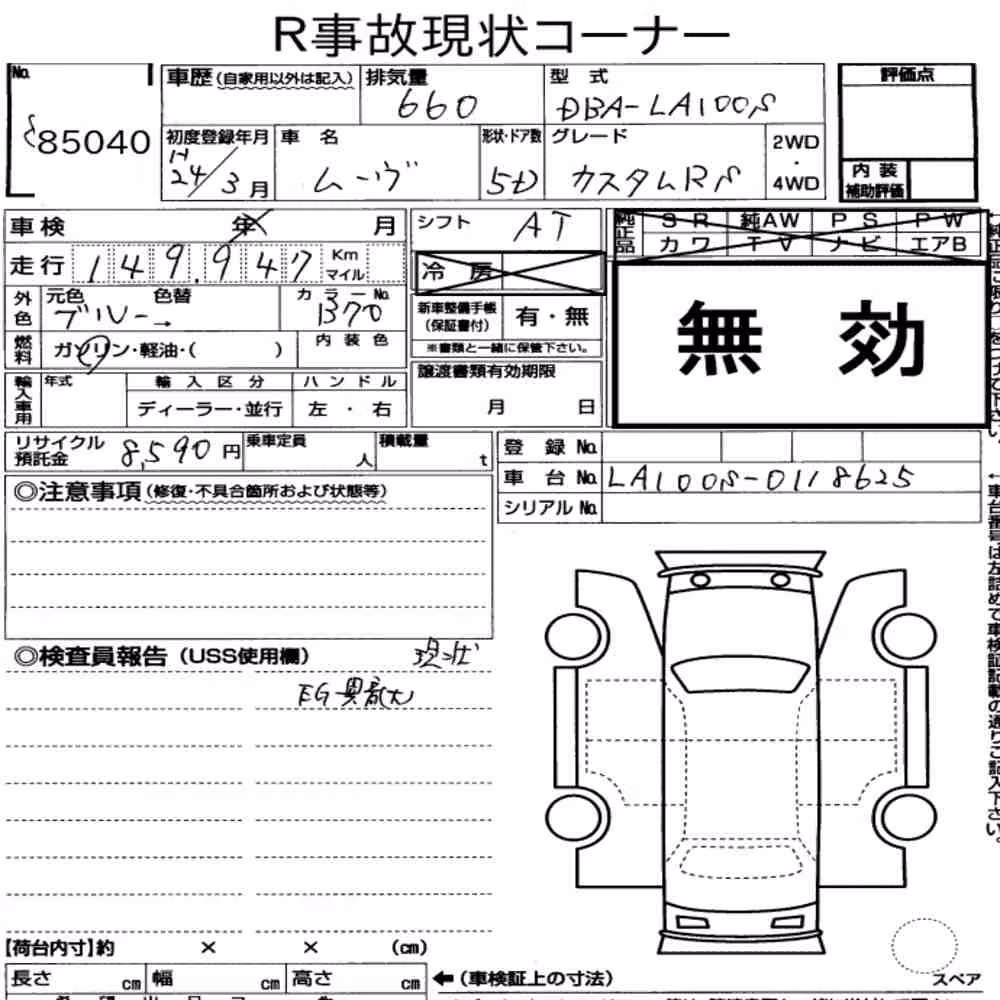 R事故現状コーナー
No. 85040
車歴(自家用以外は記入) 排気量 660 型式 DBA-LA100S
評価点
初度登録年月 H24/3月 車名 ムーヴ 形状・ドア数 5D グレード カスタムRS 2WD・4WD
内装補助評価
車検 年 月
シフト AT
純正品 SR 純AW PS PW
カワ TV ナビ エアB
走行 149,947 Km マイル
冷房
無効
外色 元色 ブルー → 色替 カラーNo. B70
新車整備手帳(保証書付) 有・無
※書類と一緒に保管下さい。
燃料 ガソリン・軽油・( ) 内装色
輸入車用 年式 輸入区分 ハンドル
ディーラー・並行 左・右
譲渡書類有効期限
月 日
リサイクル預託金 8,590円 乗車定員 人 積載量 t
登録No.
車台No. LA100S-0118625
シリアルNo.
◎注意事項(修復・不具合箇所および状態等)
◎検査員報告(USS使用欄)
EG異音大
【荷台内寸】約 × × (cm)
長さ cm 幅 cm 高さ cm
←(車検証上の寸法)
スペア
←車台番号は左詰めで車検証記載の通りご記入下さい。